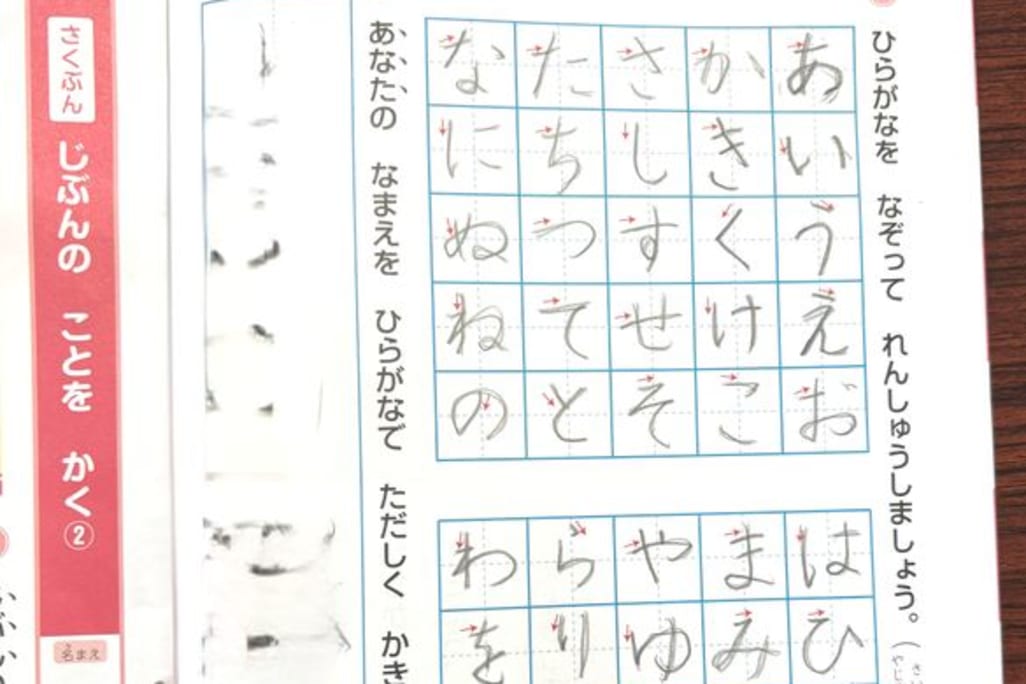 ひらがなを なぞって れんしゅうしましょう。(
あ い う え お
か き く け こ
さ し す せ そ
た ち つ て と
な に ぬ ね の
は ひ
ま み
や ゆ
ら り
わ を
あなたの なまえを ひらがなで ただしく かき
さくぶん
じぶんの ことを かく②
名まえ